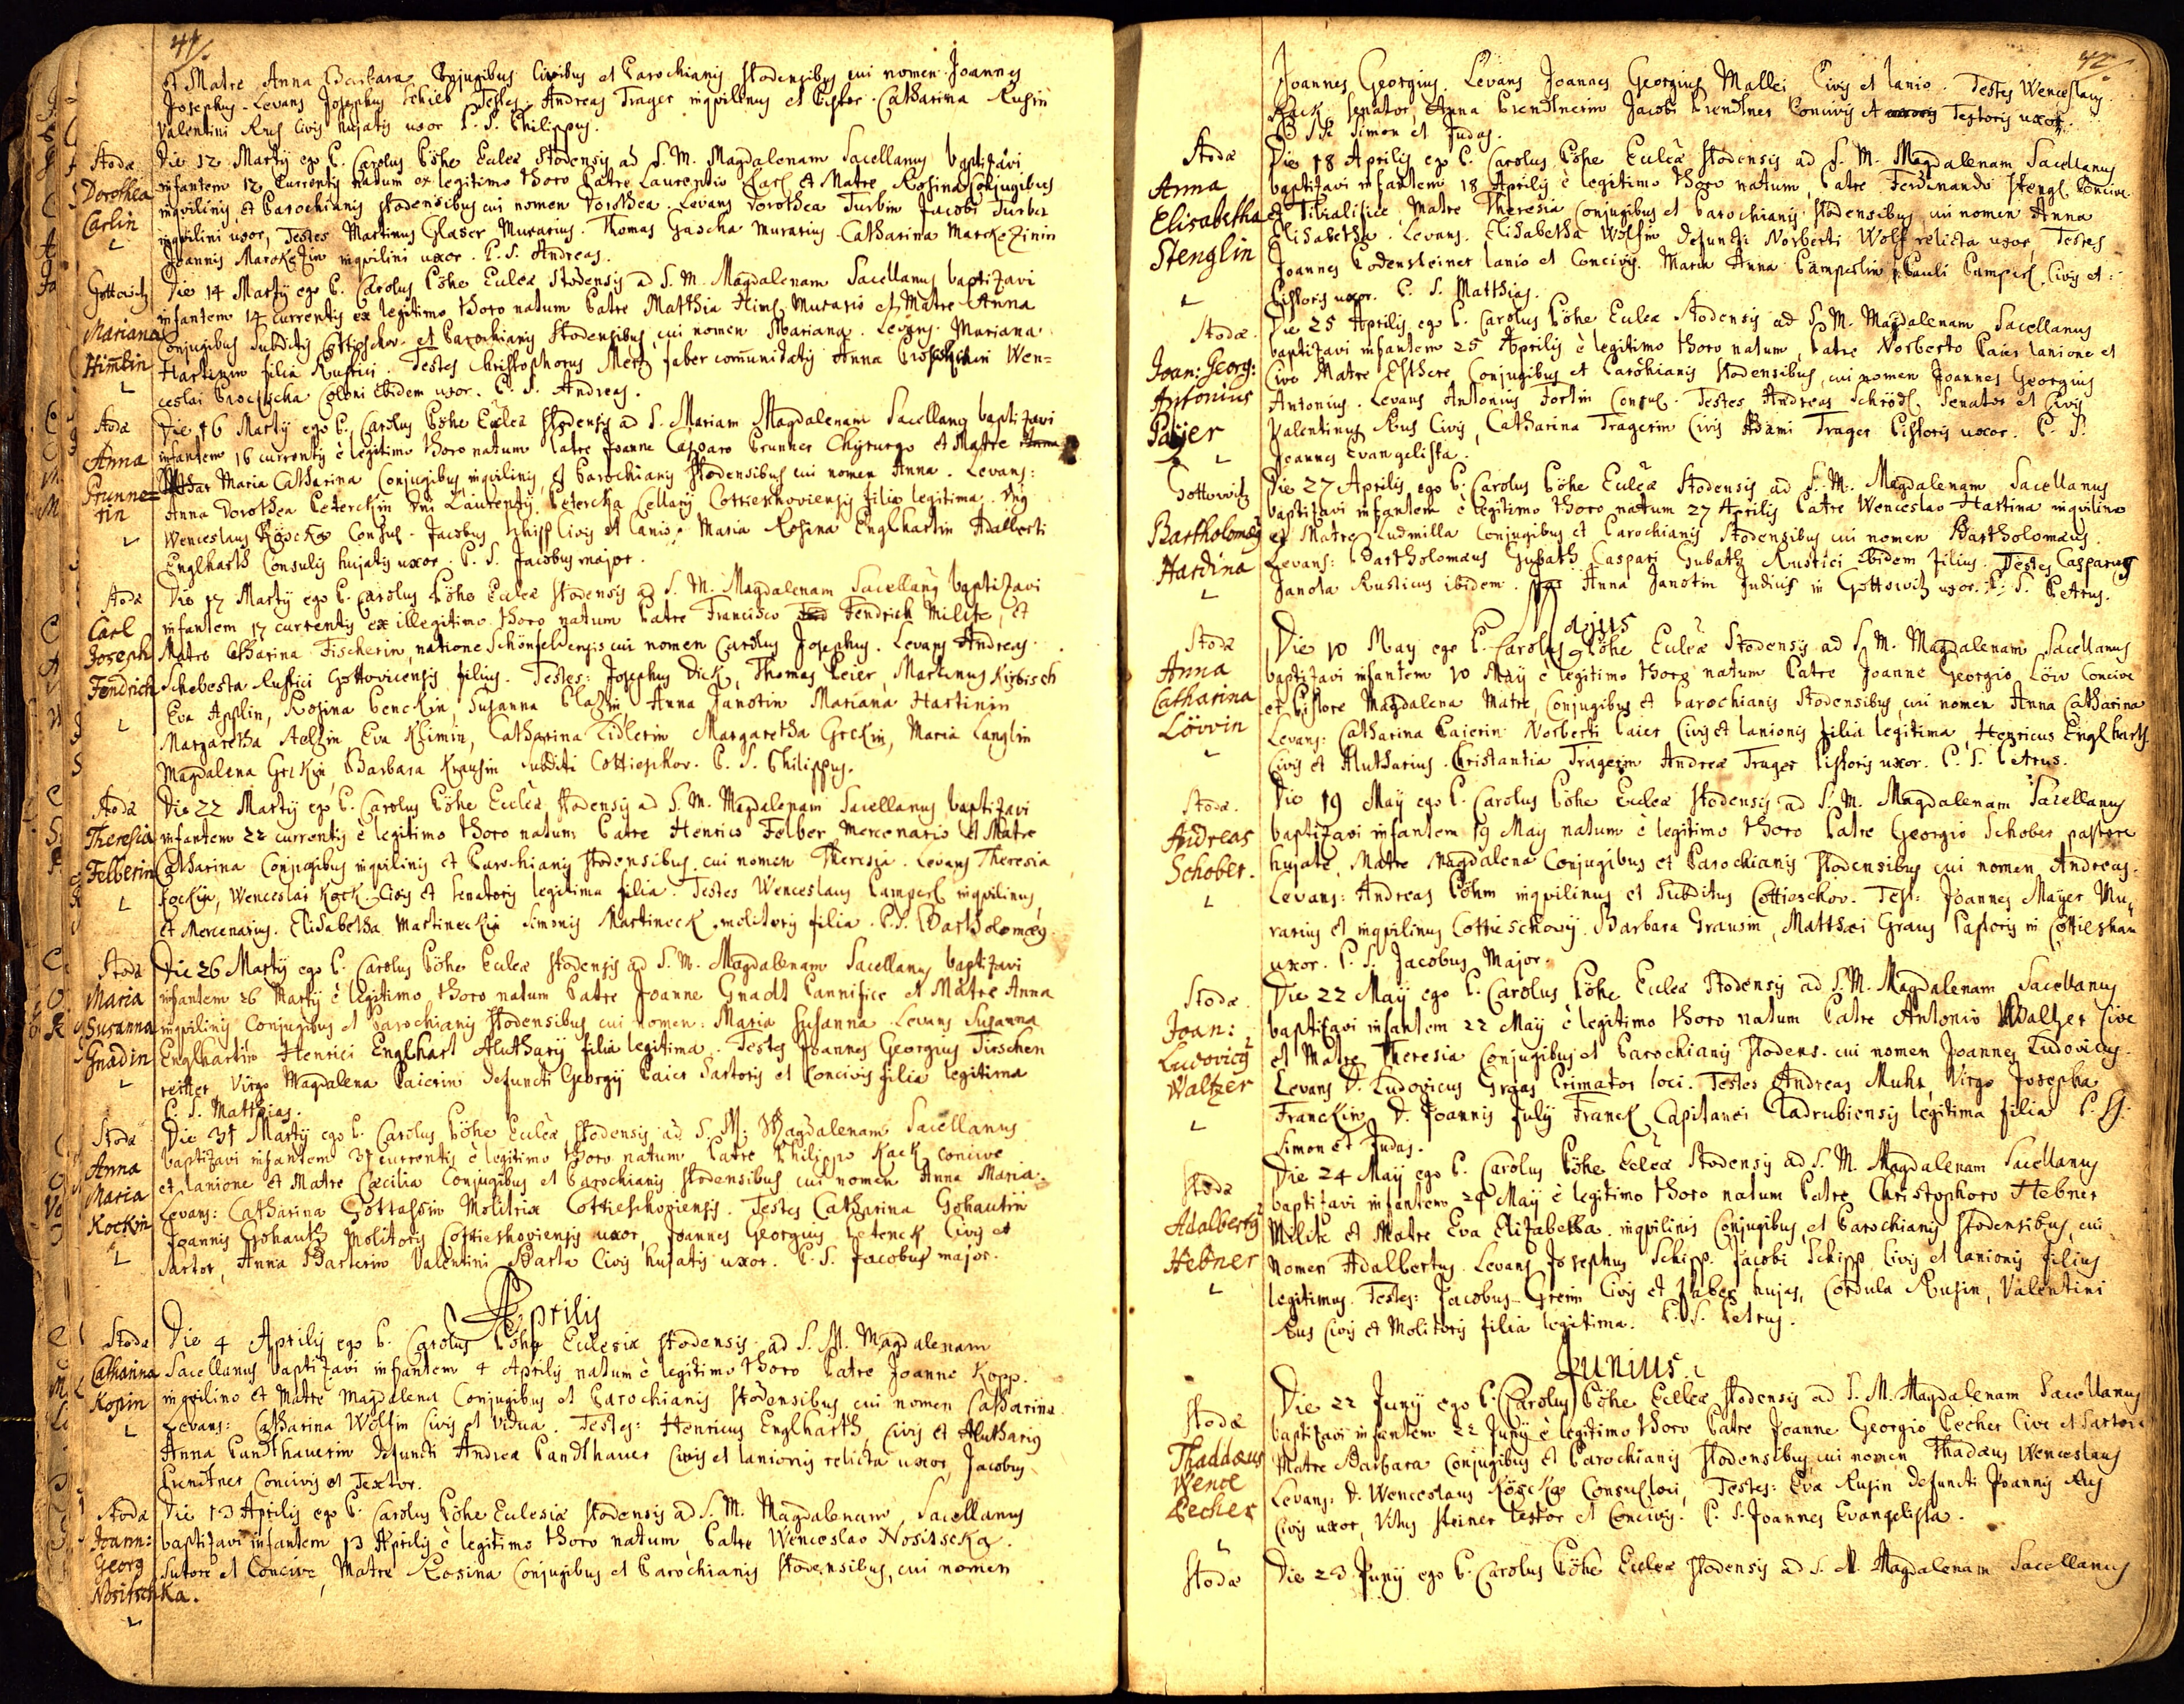 41/.
et Matre Anna Barbara Conjugibus Civibus et Parochianis Stodensibus cui nomen Joannes
Josephus. Levans Josephus Schieb Testes. Andreas Trager inqvilinus et Pistor. Catharina Rusin
Valentini Rus Civis hujatis uxor P. S. Philippus.
Stodæ
Dorothea
Carlin
Die 12 Martÿ ego P. Carolus Pöhe Eccleæ Stodensis ad S. M. Magdalenam Sacellanus baptizavi
infantem 12 Currentis natum ex legitimo thoro Patre Laurentio Carl et Matre Rosina Conjugibus
inqvilinis et Parochianis Stodensibus cui nomen Dorothea. Levans Dorothea Turbin Jacobi Turber
inqvilini uxor, Testes Martinus Glaser Murarius. Thomas Gascha murarius Catharina Marckezinin
Joannis Marokezin inqvilini uxor. P. S. Andreas.
Gottowitz
Mariana
Himlin
Die 14 Martÿ ego P. Carolus Pöhe Eccleæ Stodensis ad S. M. Magdalenam Sacellanus baptizavi
infantem 14 currentis ex legitimo thoro natum Patre Matthia Himl Murario et Matre Anna
Conjugibus Subditis Cottieschov. et Parochianis Stodensibus, cui nomen Mariana. Levans Mariana
Hartinin filia Rustici. Testes Christophorus Mertz faber com̄unitatis Anna Wen=
ceslai Procischa Coloni ibidem uxor. P. S. Andreas.
Stodæ
Anna
Prunne=
rin
Die 16 Martÿ ego P. Carolus Pöhe Eccleæ Stodensis ad S. Mariam Magdalenam Sacellanus baptizavi
infantem 16 currentis è legitimo thoro natum Patre Joanne Casparo Prunner Chyrurgo et Matre Anna
Maria Catharina Conjugibus inqvilinis, et Parochianis Stodensibus cui nomen Anna. Levans:
Anna Dorothea Peterckin Dni Laurentÿ Petercka Cellarÿ Cottieshoviensis filia legitima. Dns
Wenceslaus Consul. Jacobus Schipp Civis et lanio. Maria Rosina Englhartin Adalberti
Englharth Consulis hujatis uxor. P. S. Jacobus major.
Stodæ
Carl
Joseph
Fendrich
Die 17 Martÿ ego P. Carolus Pöhe Eccleæ Stodensis ad S. M. Magdalenam Sacellanus baptizavi
infantem 17 currentis ex illegitimo thoro natum Patre Francisco Fendrich Milite, et
Matre Catharina Fischerin, natione Schönfeldensis cui nomen Carolus Josephus. Levans Andreas
Schebesta Rustici Gottovicensis filius. Testes: Josephus Dick, Thomas Peier, Martinus Kirbisch
Eva Applin, Rosina Penckin Susanna Anna Janotin Mariana Hartinin
Margaretha Eva Catharina Zidlerin Margaretha Grekin, Maria Langlin
Magdalena Grekin, Barbara Krausin Subditi Cottieshov. P. S. Philippus.
Stodæ
Theresia
Felberin
Die 22 Martÿ ego P. Carolus Pöhe Eccleæ Stodensis ad S. M. Magdalenam Sacellanus baptizavi
infantem 22 currentis è legitimo thoro natum Patre Henrico Felber Mercenario et Matre
Catharina Conjugibus inqvilinis et Parochianis Stodensibus cui nomen Theresia. Levans Theresia
Kockin, Wenceslai Kock Civis et Senatoris legitima filia. Testes Wenceslaus Pamperl inqvilinus
et Mercenarius. Elisabetha Martineckin Simonis Martineck molitoris filia. P. S. Bartholomæus
Stodæ
Maria
Susanna
Gnadin
Die 26 Martÿ ego P. Carolus Pöhe Eccleæ Stodensis ad S. M. Magdalenam Sacellanus baptizavi
infantem 26 Martÿ è legitimo thoro natum Patre Joanne Gnadt Pannifice et Matre Anna
inqvilinis Conjugibus et Parochianis Stodensibus cui nomen: Maria Susanna Levans Susanna
Englhartin Henrici Englhart Aluthary filia legitima. Testes Joannes Georgius Tirschen
reitter Virgo Magdalena Paierin defuncti Georgÿ Paier Sartoris et Concivis filia legitima
P. S. Matthias.
Stodæ
Anna
Maria
Kockin
Die 31 Martÿ ego P. Carolus Pöhe Eccleæ Stodensis ad S. M. Magdalenam Sacellanus
baptizavi infantem 31 currentis è legitimo thoro natum Patre Philippo Kack concive
et lanione et Matre Cæcilia Conjugibus et Parochianis Stodensibus cui nomen Anna Maria.
Levans: Catharina Gottassin Molitrix Cottieshoviensis. Testes Catharina Gohautin
Joannis Gohautz Molitoris Cottieshoviensis uxor, Joannes Georgius Petenck Civis et
Sartor, Anna Barterin Valentini Barta Civis hujatis uxor. P. S. Jacobus major.
Aprilis
Stodæ
Catharina
Kopin
Die 4 Aprilis ego P. Carolus Pöhe Ecclesiæ Stodensis ad S. M. Magdalenam
Sacellanus baptizavi infantem 4 Aprilis natum è legitimo thoro Patre Joanne Kopp.
inqvilino et Matre Magdalena Conjugibus et Parochianis Stodensibus cui nomen Catharina
Levans: Catharina Wolfin Civis et Vidua. Testes: Henricus Englharth Civis et Alutharius
Anna Pandthauerin defuncti Andreæ Pandthauer Civis et lanionis relicta uxor, Jacobus
Prendtner Concivis et Textor.
Stodæ
Joann:
Georg
Nositschka.
Die 13 Aprilis ego P. Carolus Pöhe Ecclesiæ Stodensis ad S. M. Magdalenam Sacellanus
baptizavi infantem 13 Aprilis è legitimo thoro natum, Patre Wenceslao Nositscka.
Sutore et Concive, Matre Rosina Conjugibus et Parochianis Stodensibus, cui nomen
42/.
Joannes Georgius. Levans Joannes Georgius Mallei Civis et lanio. Testes Wenceslaus
Kack Senator, Anna Prendtnerin Jacobi Prendtner Concivis et Textoris uxor.
P. SS. Simon et Judas.
Stodæ
Anna
Elisabetha
Stenglin
Die 18 Aprilis ego P. Carolus Pöhe Eccleæ Stodensis ad S. M. Magdalenam Sacellanus
baptizavi infantem 18 Aprilis è legitimo thoro natum, Patre Ferdinando Stengl Concive
et Tibialifice, Matre Theresia Conjugibus et Parochianis Stodensibus cui nomen Anna
Elisabetha. Levans. Elisabetha Wolfin defuncti Norberti Wolf relicta uxor, Testes
Joannes Podensteiner lanio et Concivis. Maria Anna Pamperlin, Pauli Pamperl Civis et
Pistoris uxor. P. S. Matthias.
Stodæ.
Joan: Georg:
Antonius
Paijer
Die 25 Aprilis ego P. Carolus Pöhe Eccleæ Stodensis ad S. M. Magdalenam Sacellanus
baptizavi infantem 25 Aprilis è legitimo thoro natum, Patre Norberto Paier lanione et
Cive Matre Esthere Conjugibus et Parochianis Stodensibus, cui nomen Joannes Georgius
Antonius. Levans Antonius Fortin Consul. Testes Andreas Schrödl Senator et Civis
Valentinus Rus Civis, Catharina Tragerin Civis Adami Trager Pistoris uxor. P. S.
Joannes Evangelista.
Gottowitz
Bartholomæus
Hardina
Die 27 Aprilis ego P. Carolus Pöhe Eccleæ Stodensis ad S. M. Magdalenam Sacellanus
baptizavi infantem è legitimo thoro natum 27 Aprilis Patre Wenceslao Hartina inqvilino
et Matre Ludmilla Conjugibus et Parochianis Stodensibus cui nomen Bartholomæus.
Levans: Bartholomæus Gubath Caspari Gubath Rustici ibidem filius. Testes Casparus
Janota Rusticus ibidem. Anna Janotin Judicis in Gottowitz uxor. P. S. Petrus.
Majus
Stodæ
Anna
Catharina
Löwin
Die 10 May ego P. Carolus Pöhe Eccleæ Stodensis ad S. M. Magdalenam Sacellanus
baptizavi infantem 10 Maÿ è legitimo thoro natum Patre Joanne Georgio Löw Concive
et Pistore Magdalena Matre, Conjugibus et Parochianis Stodensibus, cui nomen Anna Catharina
Levans: Catharina Paierin Norberti Paier Civis et lanionis filia legitima, Henricus Englharth
Civis et Alutharius. Christantia Tragerin Andreæ Trager Pistoris uxor. P. S. Petrus.
Stodæ.
Andreas
Schober.
Die 19 Maÿ ego P. Carolus Pöhe Eccleæ Stodensis ad S. M. Magdalenam Sacellanus
baptizavi infantem 19 May natum è legitimo thoro Patre Georgio Schober pastore
hujate, Matre Magdalena Conjugibus et Parochianis Stodensibus cui nomen Andreas.
Levans: Andreas Böhm inqvilinus et Subditus Cottieschov. Test: Joannes Mayer Mu,
rarius et inqvilinus Cottieschovÿ. Barbara Grausin, Matthæi Graus Pastoris in
uxor. P. S. Jacobus Major.
Stodæ.
Joan:
Ludovicus
Waltzer
Die 22 Maÿ ego P. Carolus Pöhe Eccleæ Stodensis ad S. M. Magdalenam Sacellanus
baptizavi infantem 22 Maÿ è legitimo thoro natum Patre Antonio Waltzer Cive
et Matre Theresia Conjugibus et Parochianis Stodens. cui nomen Joannes Ludovicus.
Levans D. Ludovicus Graas Primator loci. Testes Andreas Muhr, Virgo Josepha
Franckin D. Joannis Julÿ Franck Capitanei Cladrubiensis legitima filia P. SS.
Simon et Judas.
Stodæ
Adalbertus
Hebner
Die 24 Maÿ ego P. Carolus Pöhe Eccleæ Stodensis ad S. M. Magdalenam Sacellanus
baptizavi infantem 24 Maÿ è legitimo thoro natum Patre Christophoro Hebner
Milite et Matre Eva Elizabetha. inqvilinis Conjugibus, et Parochianis Stodensibus, cui
nomen Adalbertus. Levans Josephus Schipp Jacobi Schipp Civis et lanionis filius
legitimus. Testes: Jacobus Greim Civis et Faber hujas, Cordula Rusin, Valentini
Rus Civis et Molitoris filia legitima. P. S. Petrus.
Junius
Stodæ
Thaddæus
Wence
Pecher
Die 22 Junÿ ego P. Carolus Pöhe Eccleæ Stodensis ad S. M. Magdalenam Sacellanus
baptizavi infantem 22 Junÿ è legitimo thoro Patre Joanne Georgio Pecher Cive et Sartore
Matre Barbara Conjugibus et Parochianis Stodensibus, cui nomen Thadæus Wenceslaus
Levans: D. Wenceslaus Consul loci, Testes: Eva Rusin defuncti Joannis Rus
Civis uxor, Vitus Steiner textor et Concivis. P. S. Joannes Evangelista.
Stodæ
Die 23 Junÿ ego P. Carolus Pöhe Eccleæ Stodensis ad S. M. Magdalenam Sacellanus